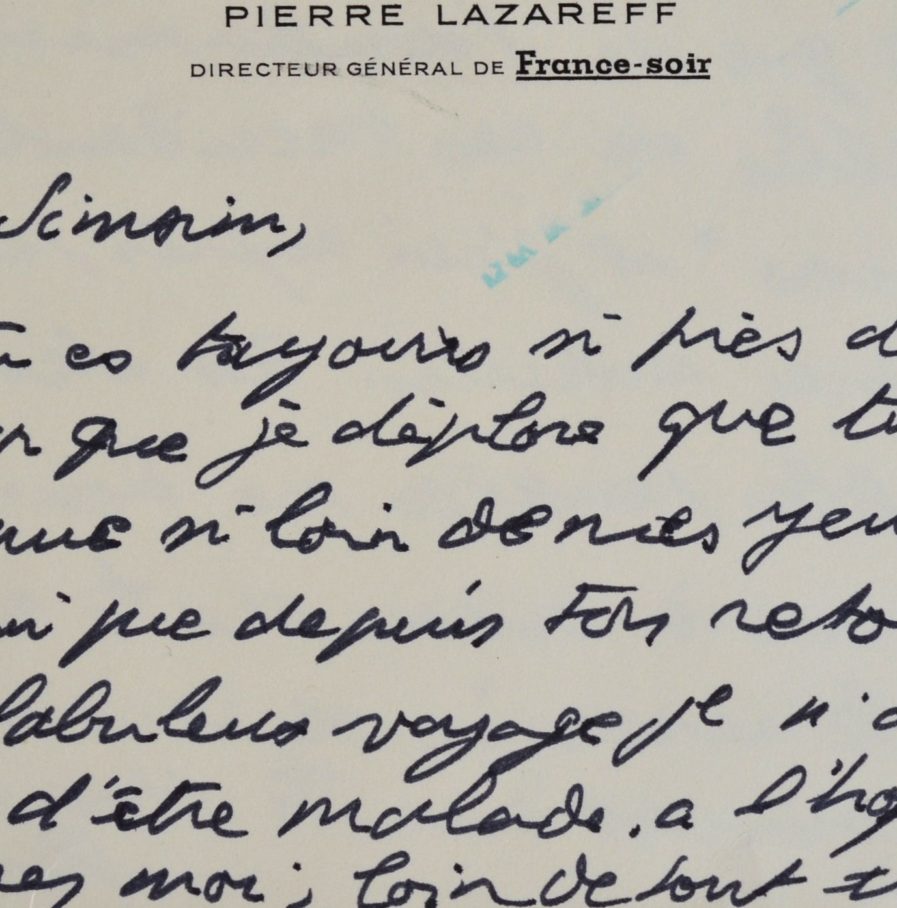 PIERRE LAZAREFF
DIRECTEUR GÉNÉRAL DE France-soir
es toujours si près d
que je déplore que tu
si loin de mes yeu
que depuis ton reto
fabuleux voyage je n'a
d'être malade. a l'hop
moi, loin de tout